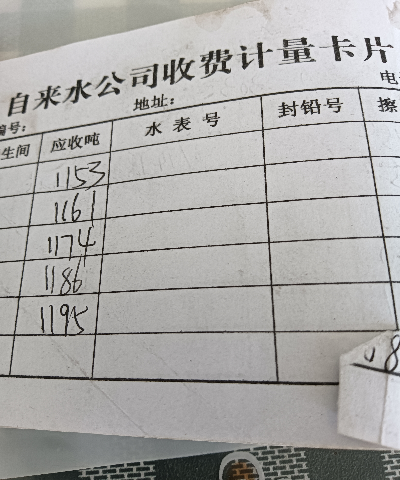 自来水公司收费计量卡片
编号: 地址: 电
生间 应收吨 水表号 封铅号 擦
1153
1161
1174
1186
1195
8